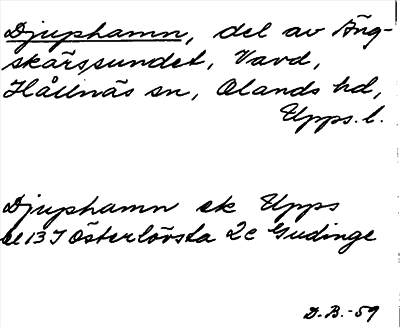 Djuphamn, del av Äng-
skärssundet, Vavd,
Hållnäs sn, Olands hd,
Upps. l.
Djuphamn ek Upps
bl 13 I Österlövsta 2c Gudinge
D.B.-59